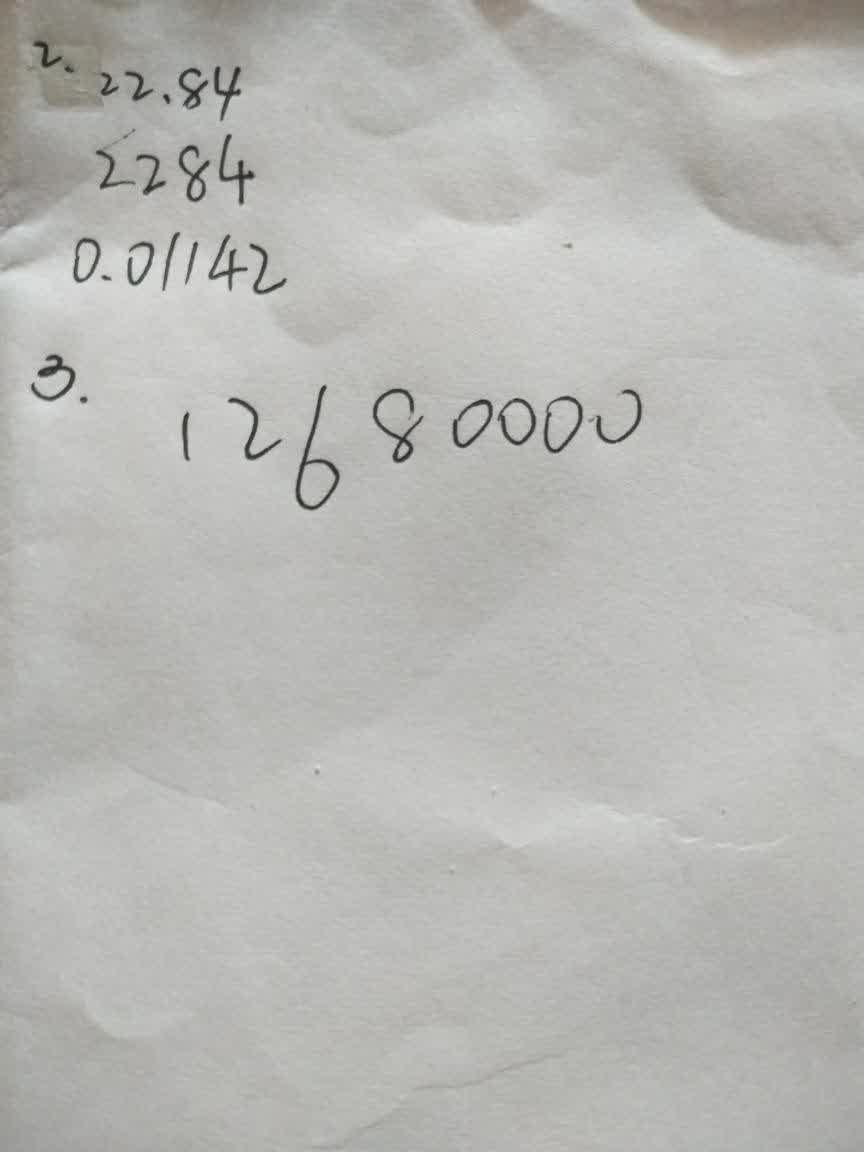 2. 22.84
2284
0.01142
3. 12680000